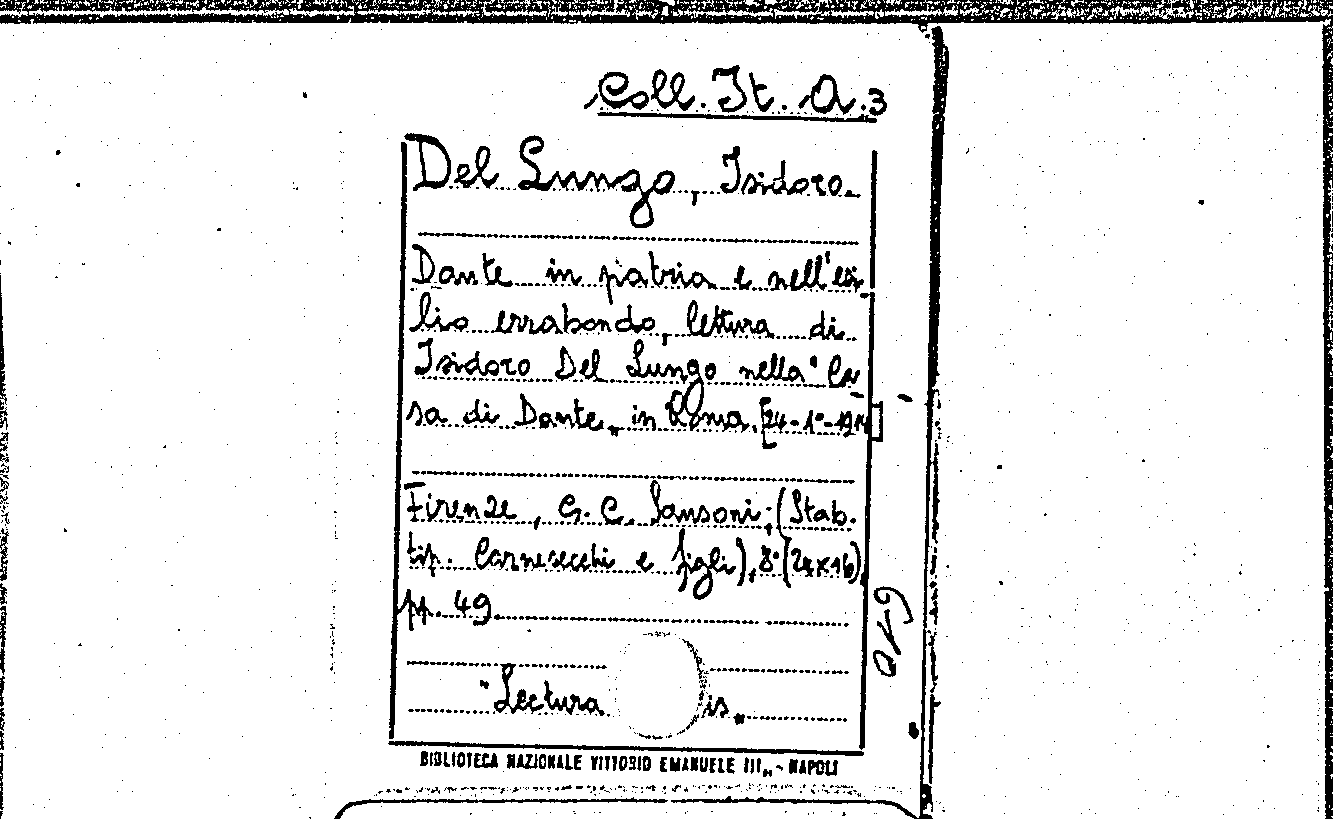 Coll. It. A.3
Del Lungo, Isidoro.
Dante in patria e nell'esi-
lio errabondo, lettura di
Isidoro Del Lungo nella "Ca-
sa di Dante„ in Roma. [24-1°-1914]
Firenze, G. C. Sansoni, (Stab.
tip. Carnesecchi e figli), 8° (24x16),
pp. 49.
"Lectura is„
BIBLIOTECA NAZIONALE VITTORIO EMANUELE III„ - NAPOLI